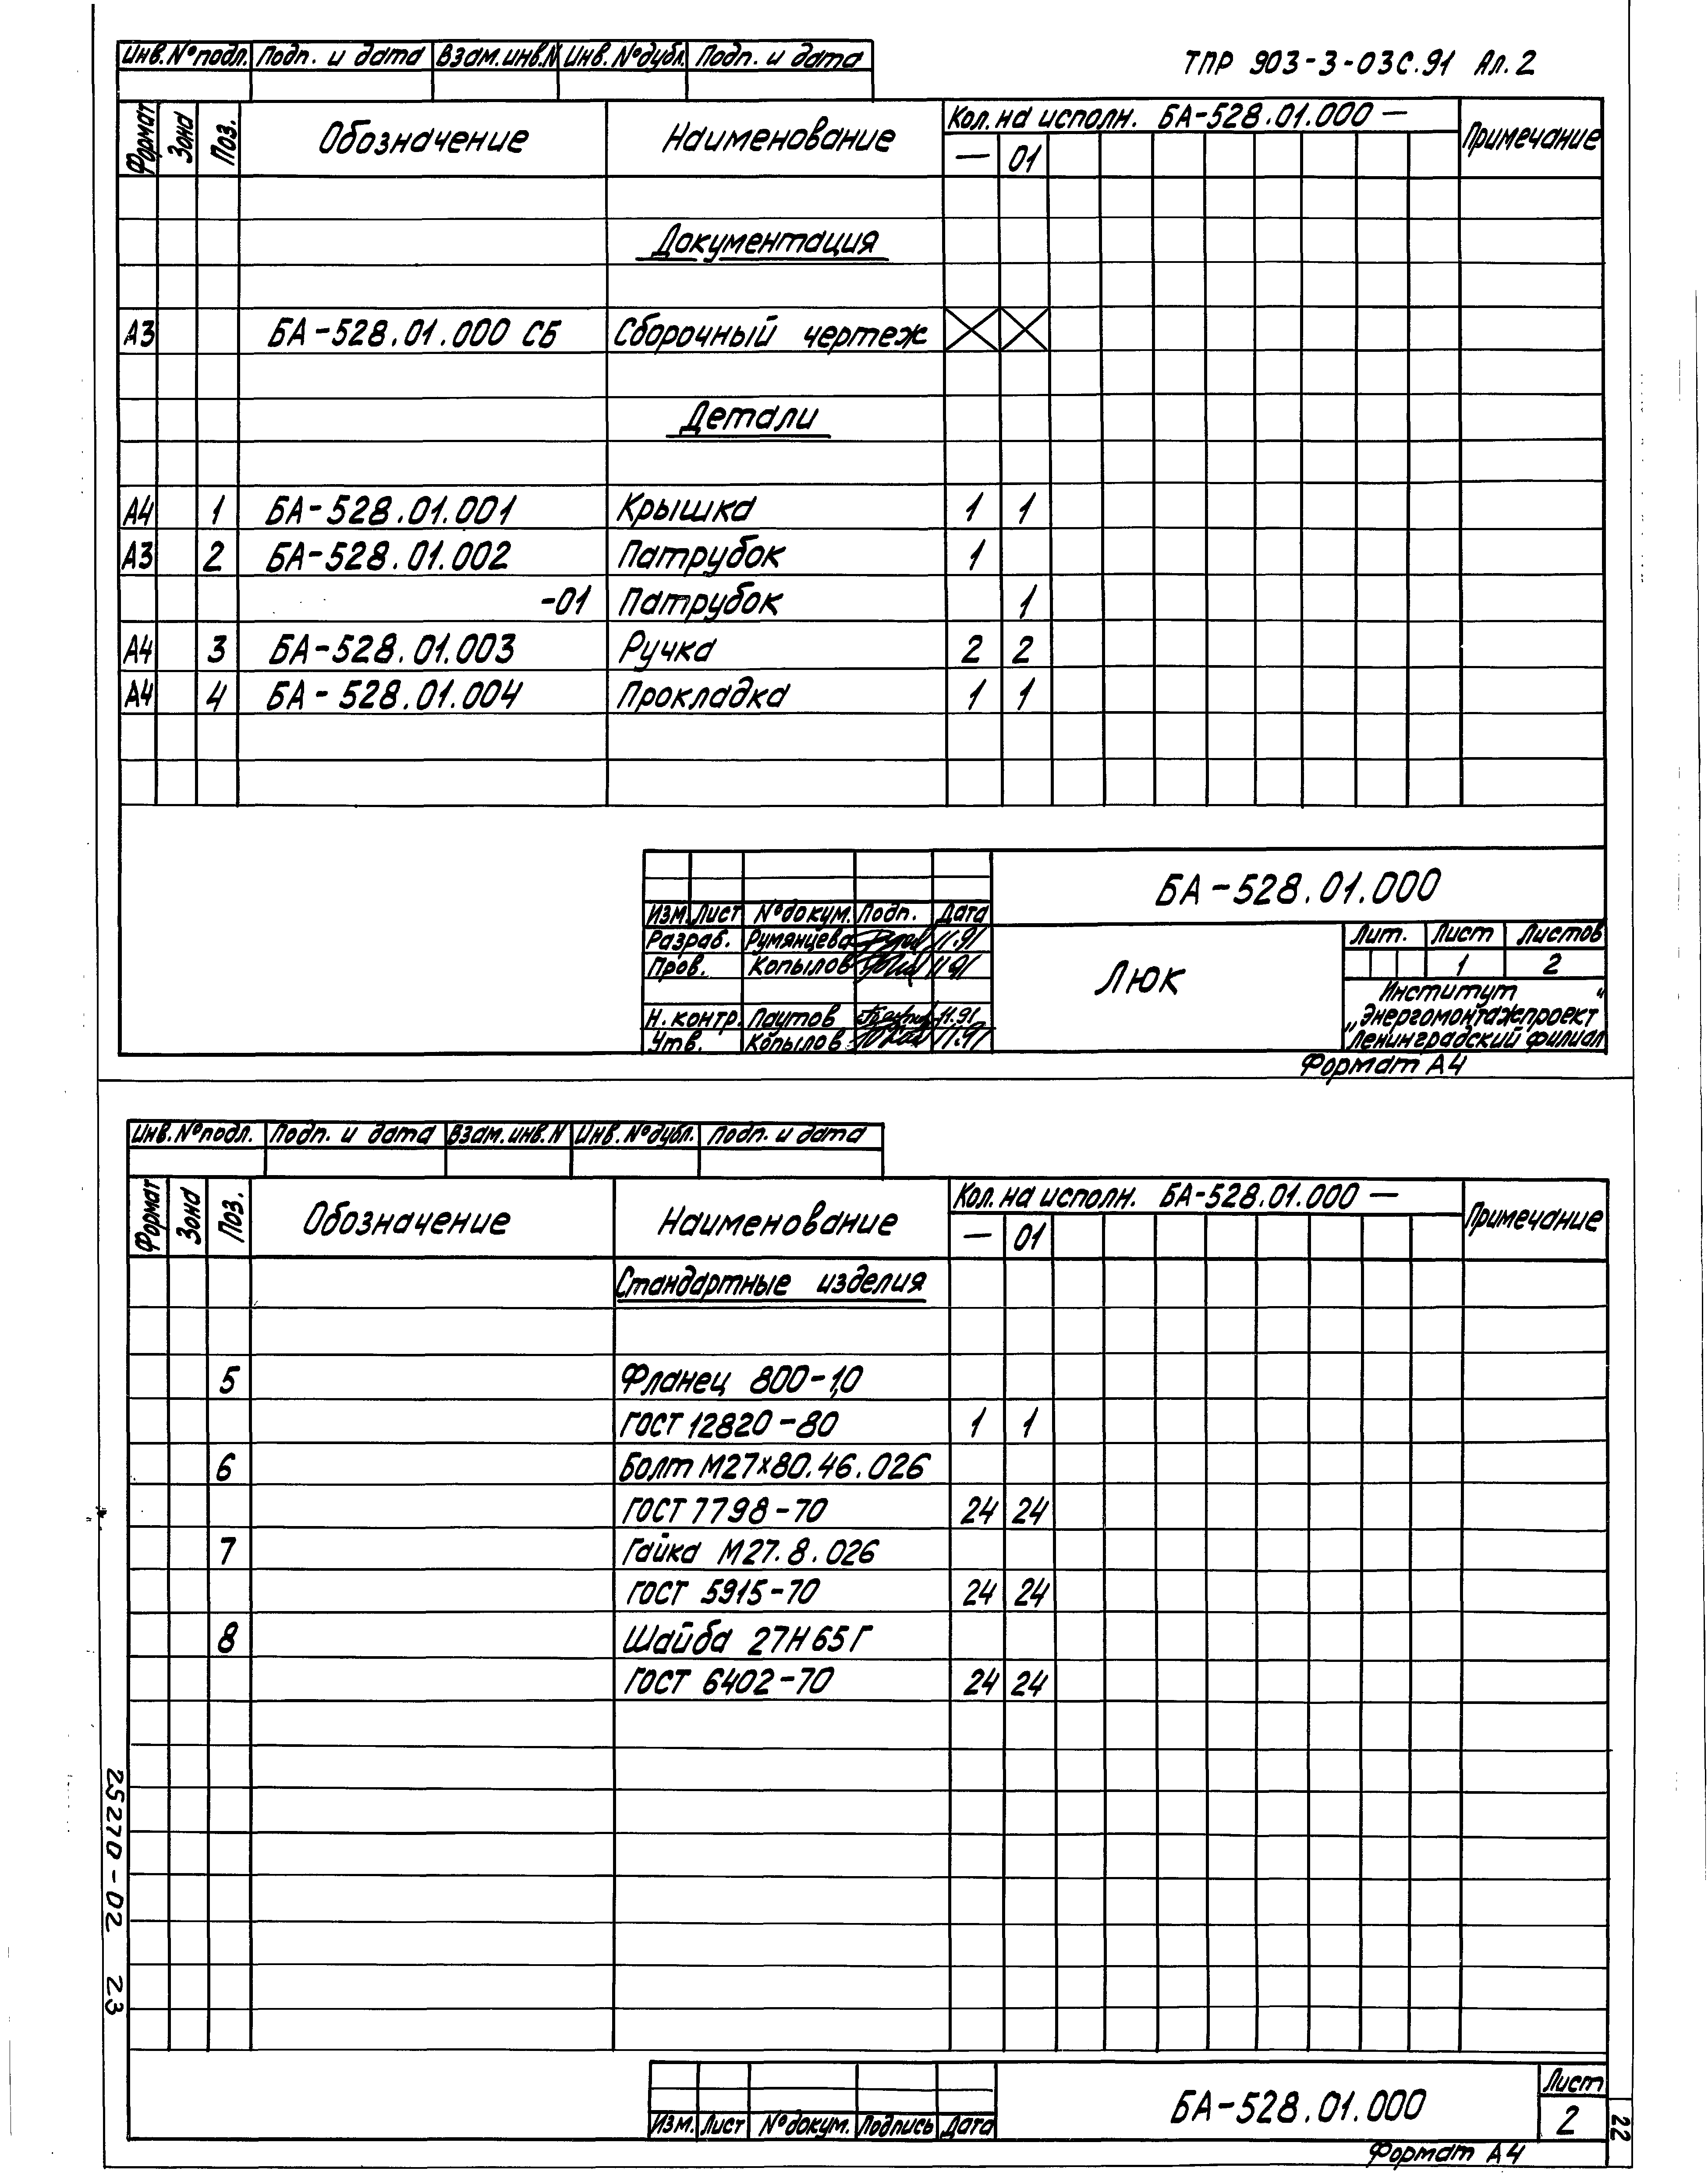 ТПР 903-3-03с.91 Ал.2
Инв.№подл. Подп. и дата Взам.инв.N Инв.№дубл. Подп. и дата
Формат Зона Поз. Обозначение Наименование Кол. на исполн. БА-528.01.000 — Примечание
— 01
Документация
А3 БА-528.01.000 СБ Сборочный чертеж
Детали
А4 1 БА-528.01.001 Крышка 1 1
А3 2 БА-528.01.002 Патрубок 1
-01 Патрубок 1
А4 3 БА-528.01.003 Ручка 2 2
А4 4 БА-528.01.004 Прокладка 1 1
БА-528.01.000
Изм. Лист №докум. Подп. Дата
Разраб. Румянцева 11.91
Пров. Копылов 11.91
Н. контр. Паутов 11.91
Утв. Копылов 11.91
Люк
Лит. Лист Листов
1 2
Институт
„Энергомонтажпроект"
Ленинградский филиал
Формат А4
Инв.№подл. Подп. и дата Взам.инв.N Инв.№дубл. Подп. и дата
Формат Зона Поз. Обозначение Наименование Кол. на исполн. БА-528.01.000 — Примечание
— 01
Стандартные изделия
5 Фланец 800-1,0
ГОСТ 12820-80 1 1
6 Болт М27х80.46.026
ГОСТ 7798-70 24 24
7 Гайка М27.8.026
ГОСТ 5915-70 24 24
8 Шайба 27Н65Г
ГОСТ 6402-70 24 24
Изм. Лист №докум. Подпись Дата
БА-528.01.000
Лист
2
Формат А4
22
25270-02 23